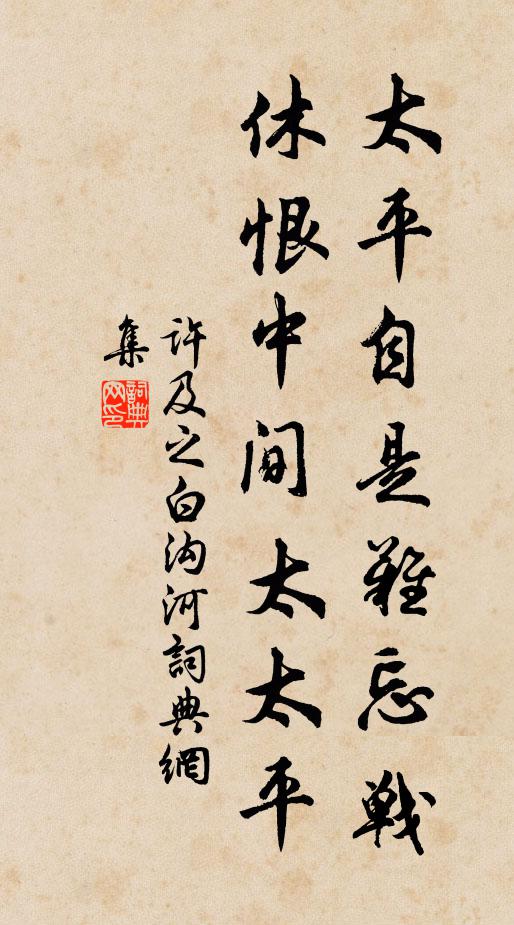 太平自是難忘戰
休恨中间太太平
许及之白沟河詞典網
集
詞典
网印